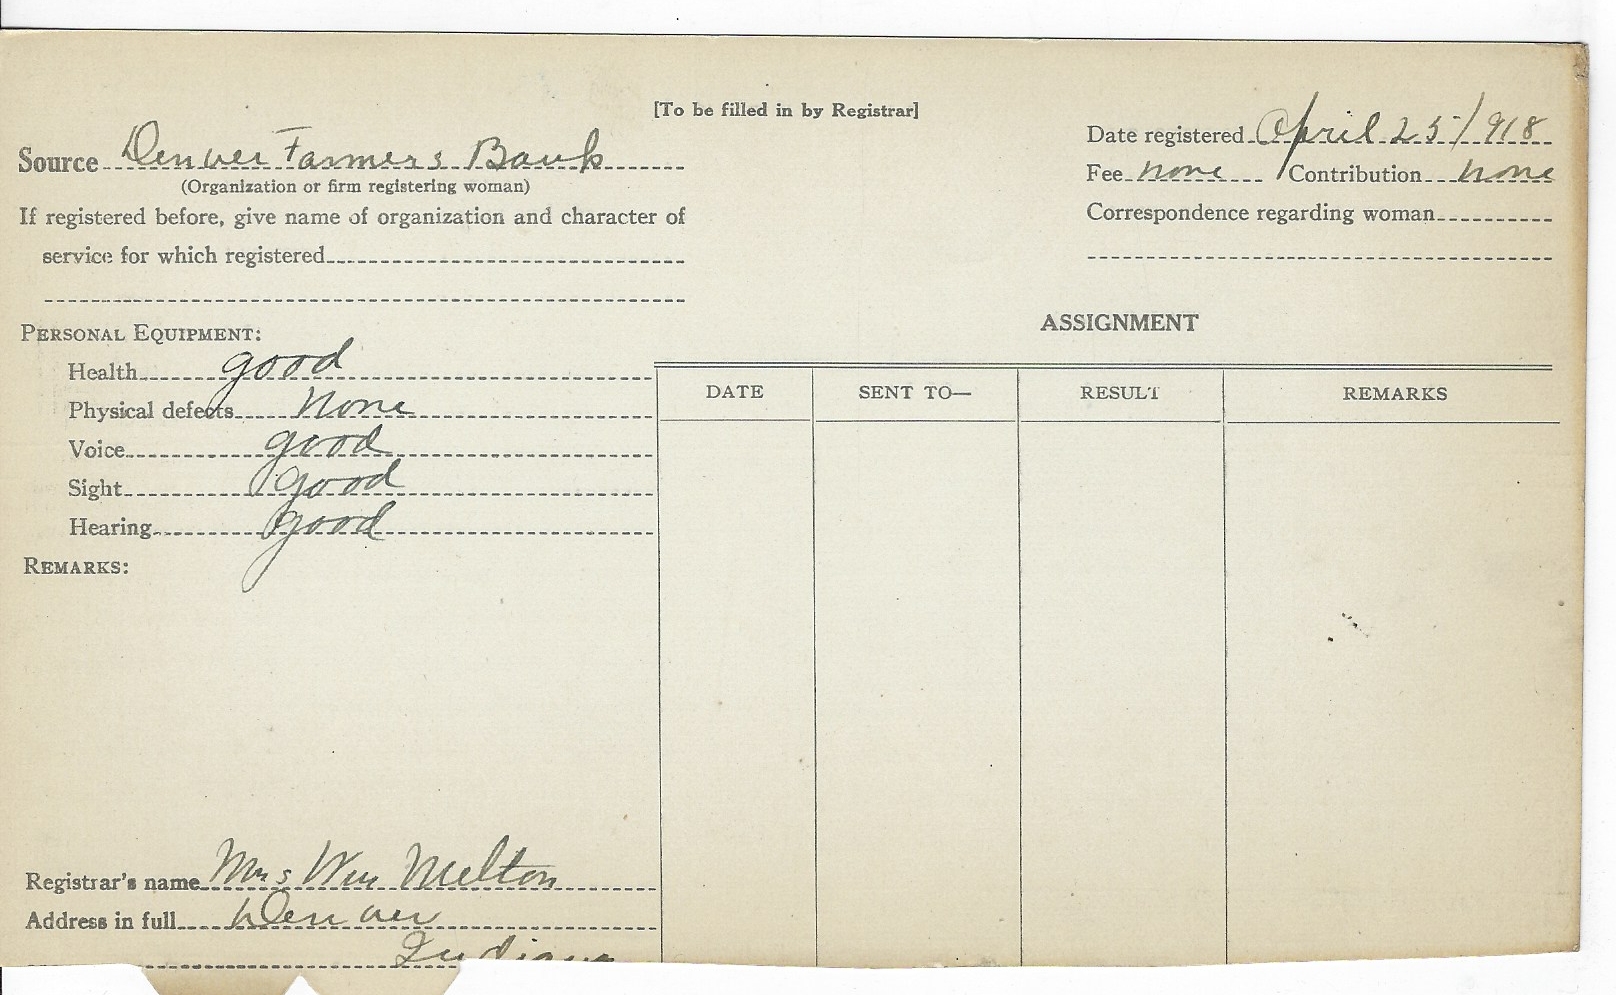 [To be filled in by Registrar]
Source Denver Farmers Bank
(Organization or firm registering woman)
If registered before, give name of organization and character of
service for which registered
Date registered April 25/918
Fee none Contribution none
Correspondence regarding woman
PERSONAL EQUIPMENT:
Health good
Physical defects none
Voice good
Sight good
Hearing good
REMARKS:
ASSIGNMENT
DATE SENT TO— RESULT REMARKS
Registrar's name Mrs Wm Melton
Address in full Denver
Indiana